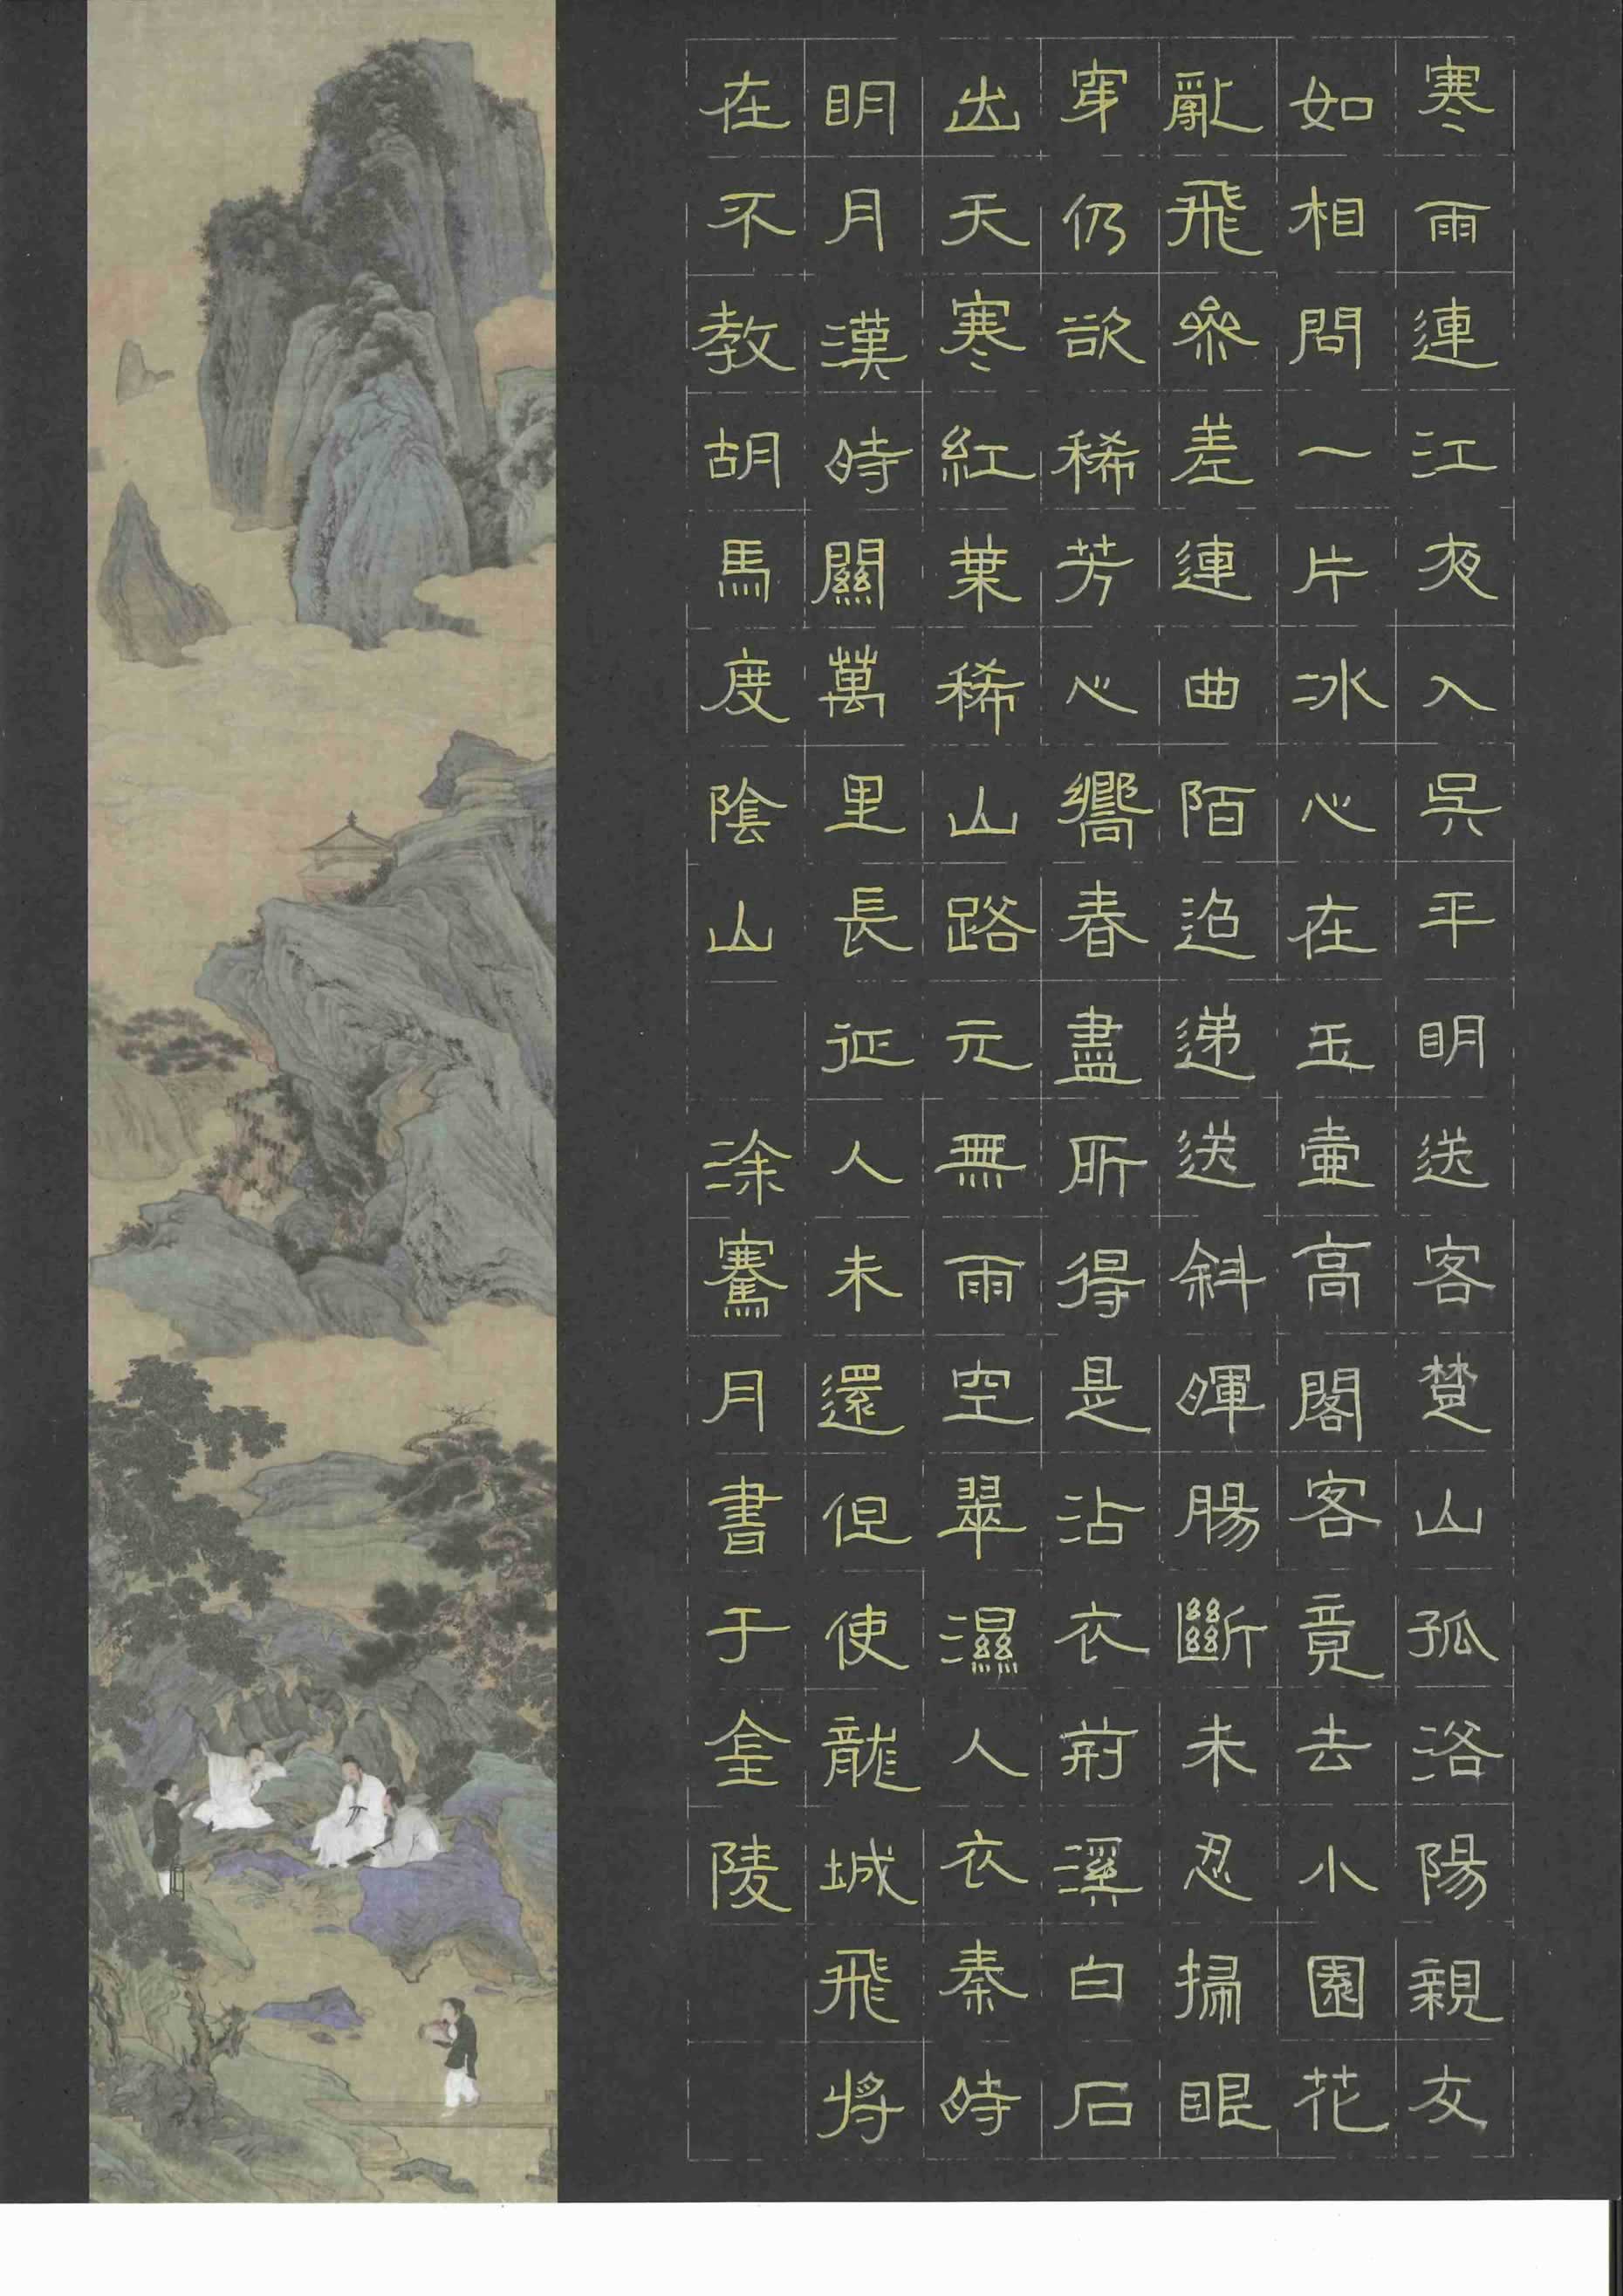 寒雨連江夜入吳平眀送客楚山孤洛陽親友
如相問一片冰心在玉壺高閣客竟去小園花
亂飛參差連曲陌迢遞送斜暉腸斷未忍掃眼
穿仍欲稀芳心嚮春盡所得是沾衣荊溪白石
出天寒紅葉稀山路元無雨空翠濕人衣秦時
眀月漢時關萬里長征人未還但使龍城飛將
在不教胡馬度陰山 涂騫月書于金陵